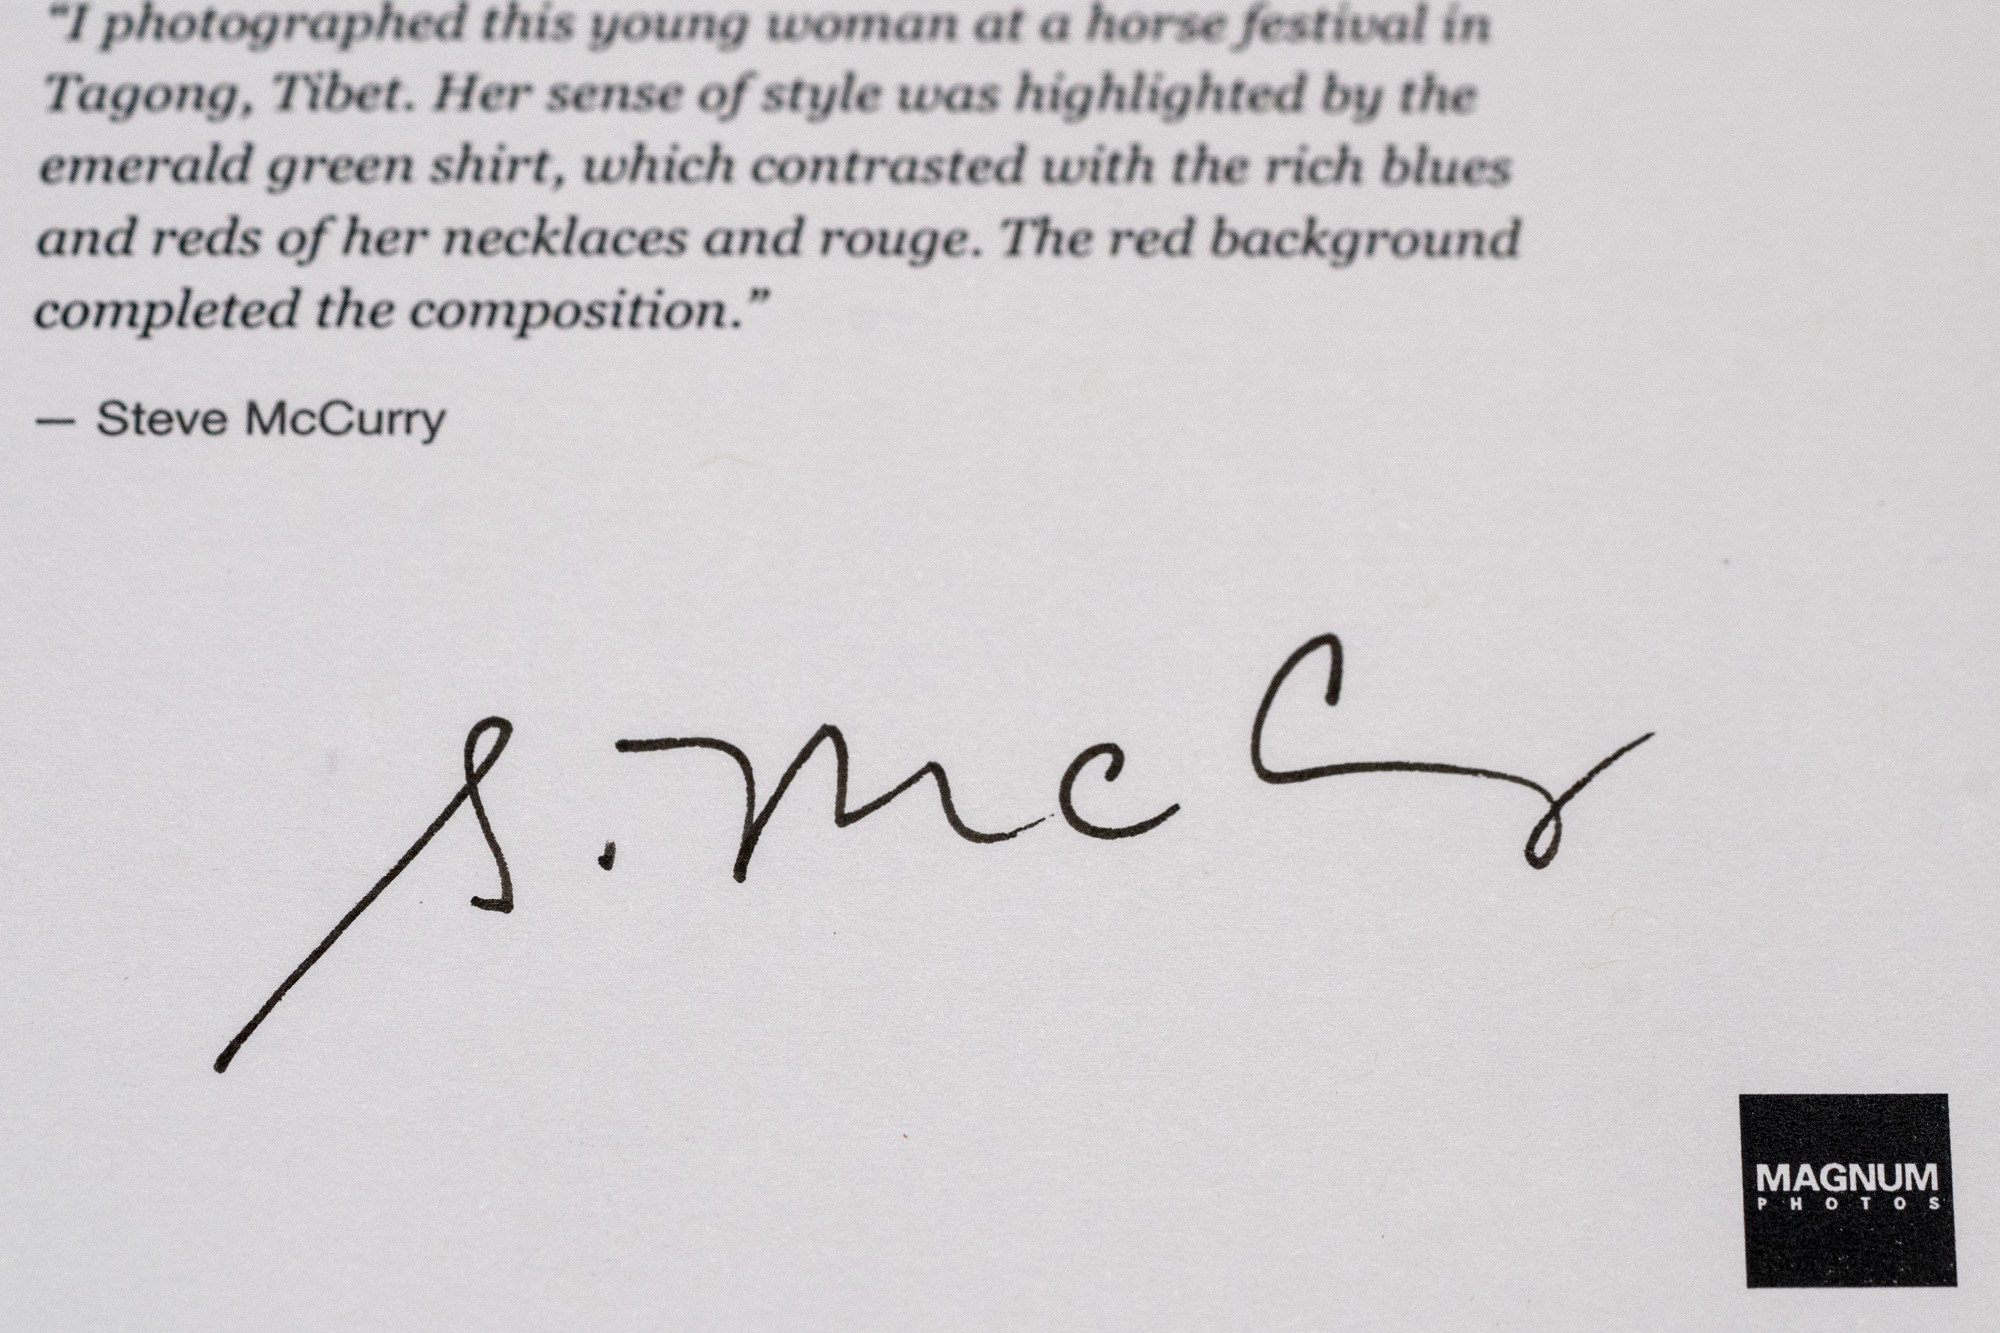 “I photographed this young woman at a horse festival in
Tagong, Tibet. Her sense of style was highlighted by the
emerald green shirt, which contrasted with the rich blues
and reds of her necklaces and rouge. The red background
completed the composition.”
— Steve McCurry
S. McCurry
MAGNUM
PHOTOS